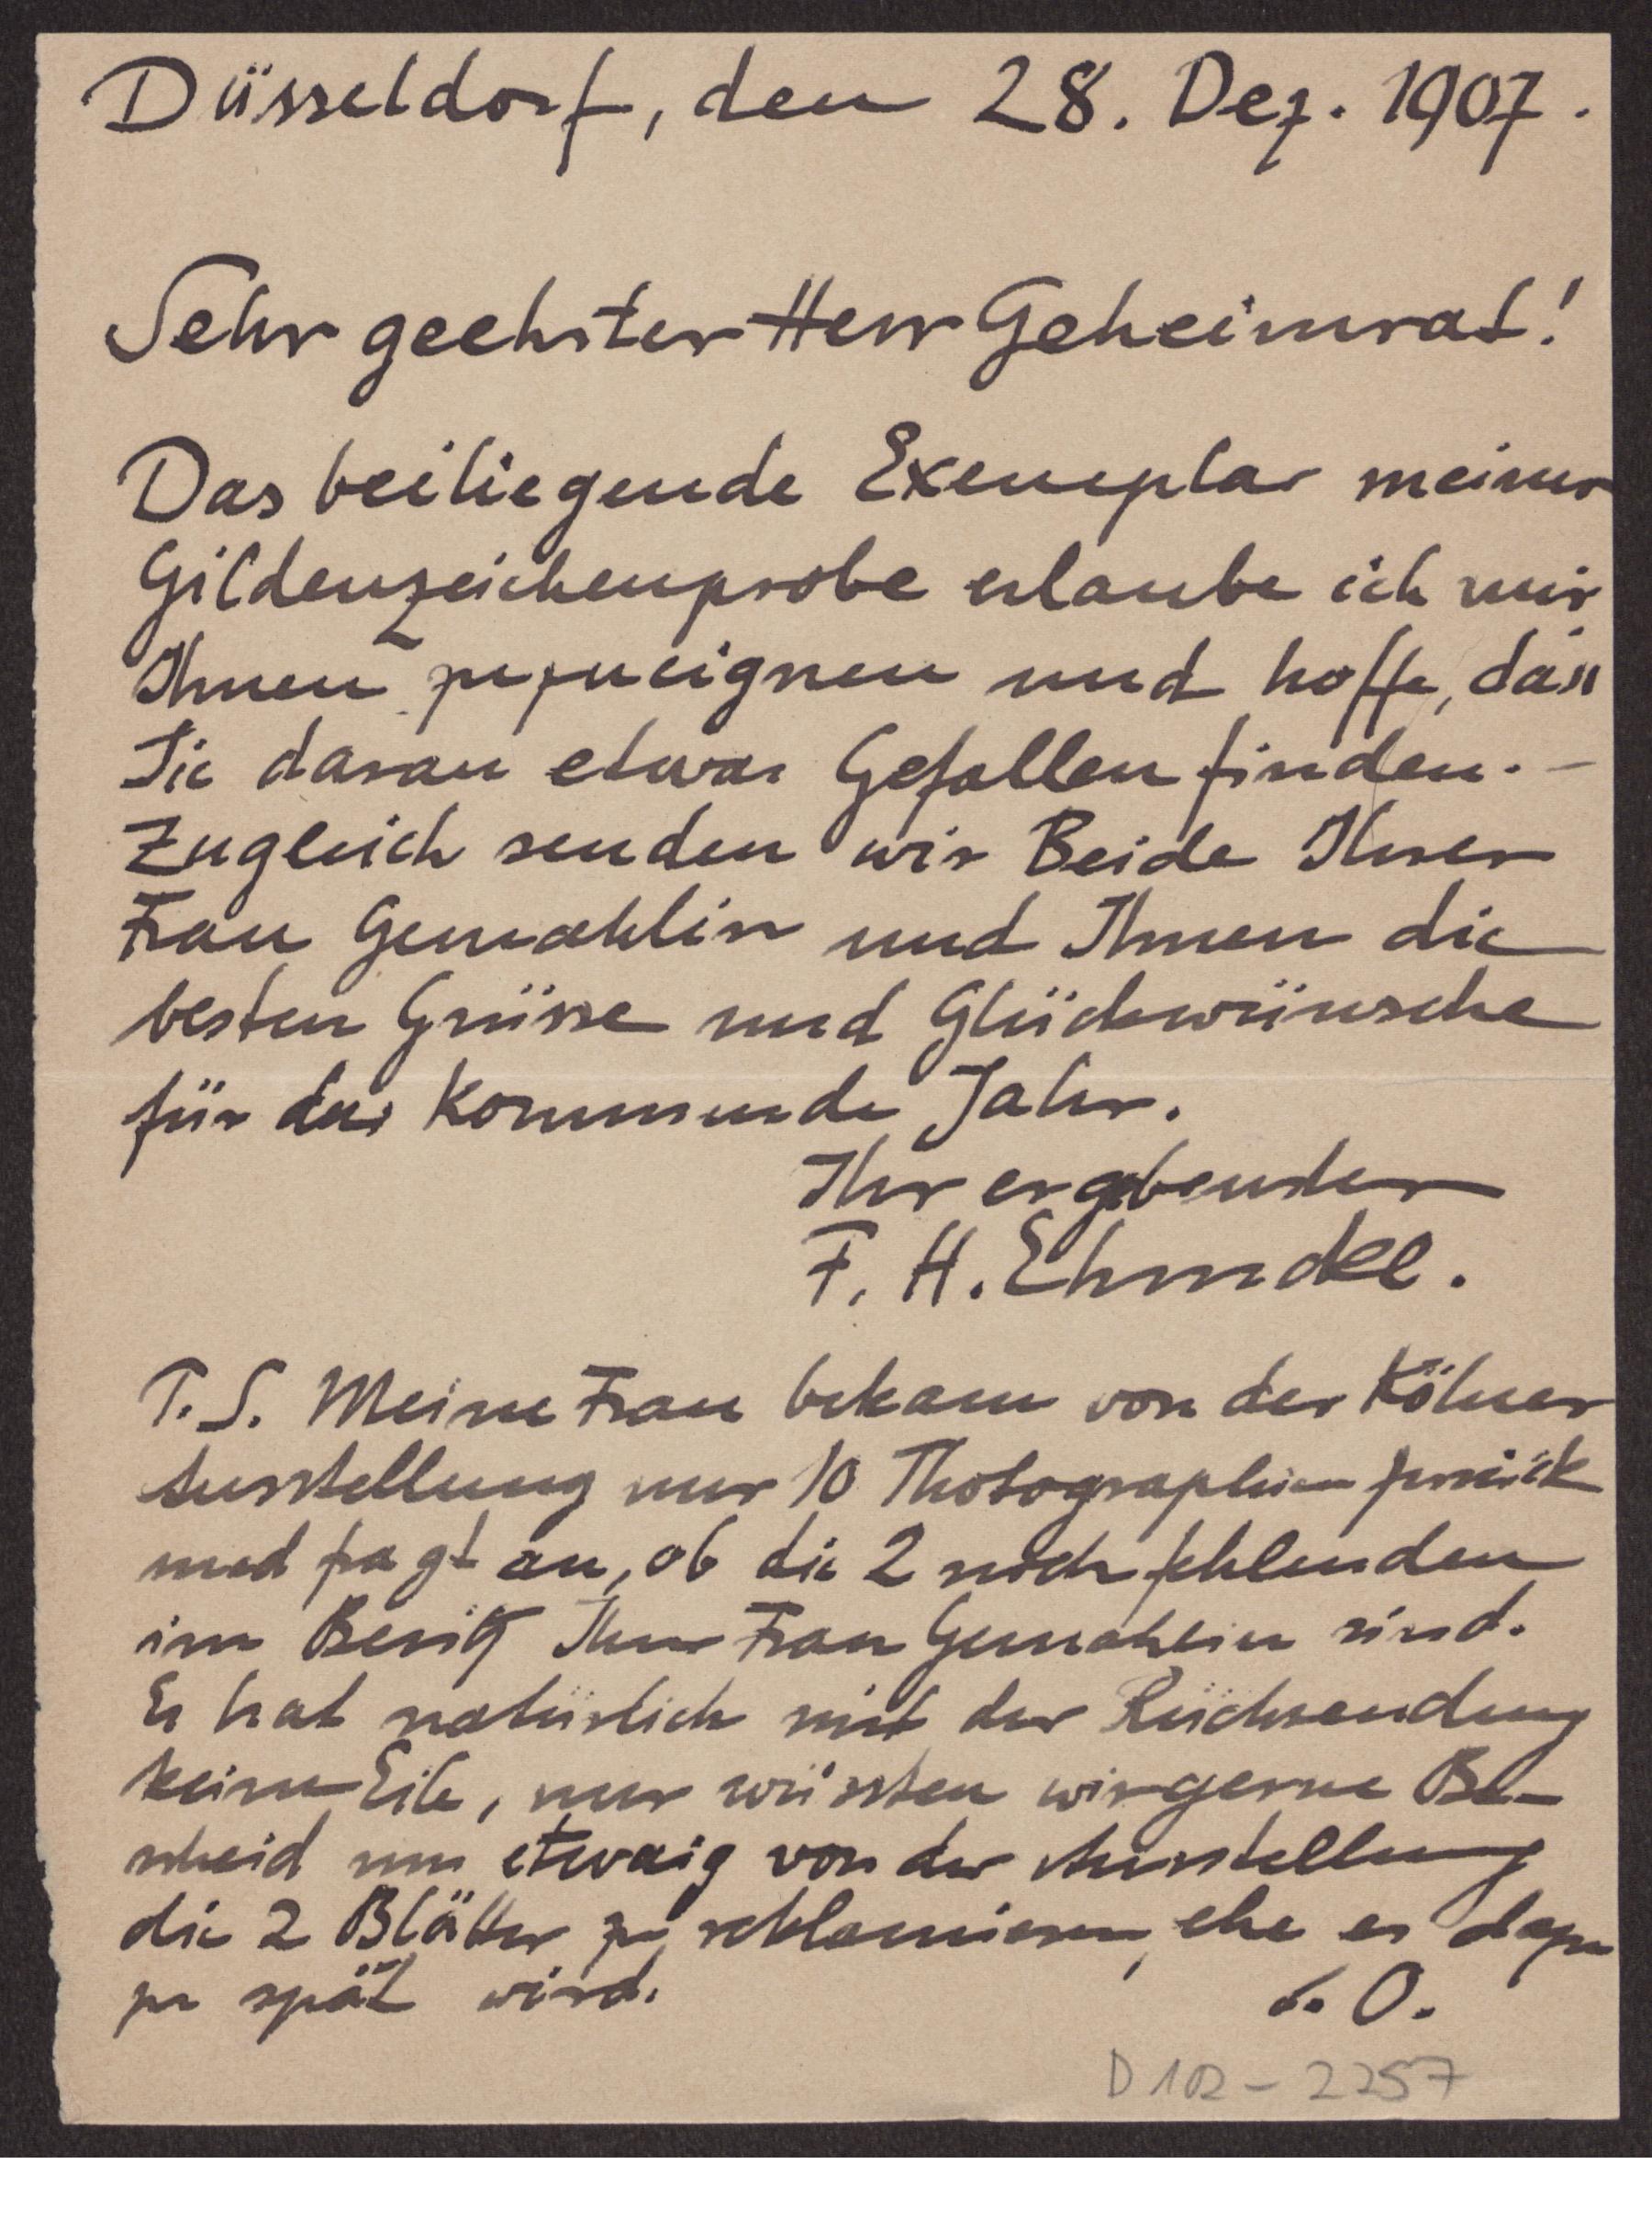 Düsseldorf, den 28. Dez. 1907.
Sehr geehrter Herr Geheimrat!
Das beiliegende Exemplar meiner
Gildenzeichenprobe erlaube ich mir
Ihnen zuzueignen und hoffe, dass
Sie daran etwas Gefallen finden. –
Zugleich senden wir Beide Ihrer
Frau Gemahlin und Ihnen die
besten Grüsse und Glückwünsche
für das kommende Jahr.
Ihr ergebenster
F. H. Ehmcke.
P.S. Meine Frau bekam von der Kölner
Ausstellung nur 10 Photographien zurück
und fragt an, ob die 2 noch fehlenden
im Besitz Ihrer Frau Gemahlin sind.
Es hat natürlich mit der Rücksendung
keine Eile, nur wüssten wir gerne Be-
scheid um etwaig von der Ausstellung
die 2 Blätter zu reklamieren, ehe es dazu
zu spät wird. d. O.
D 102 – 2257